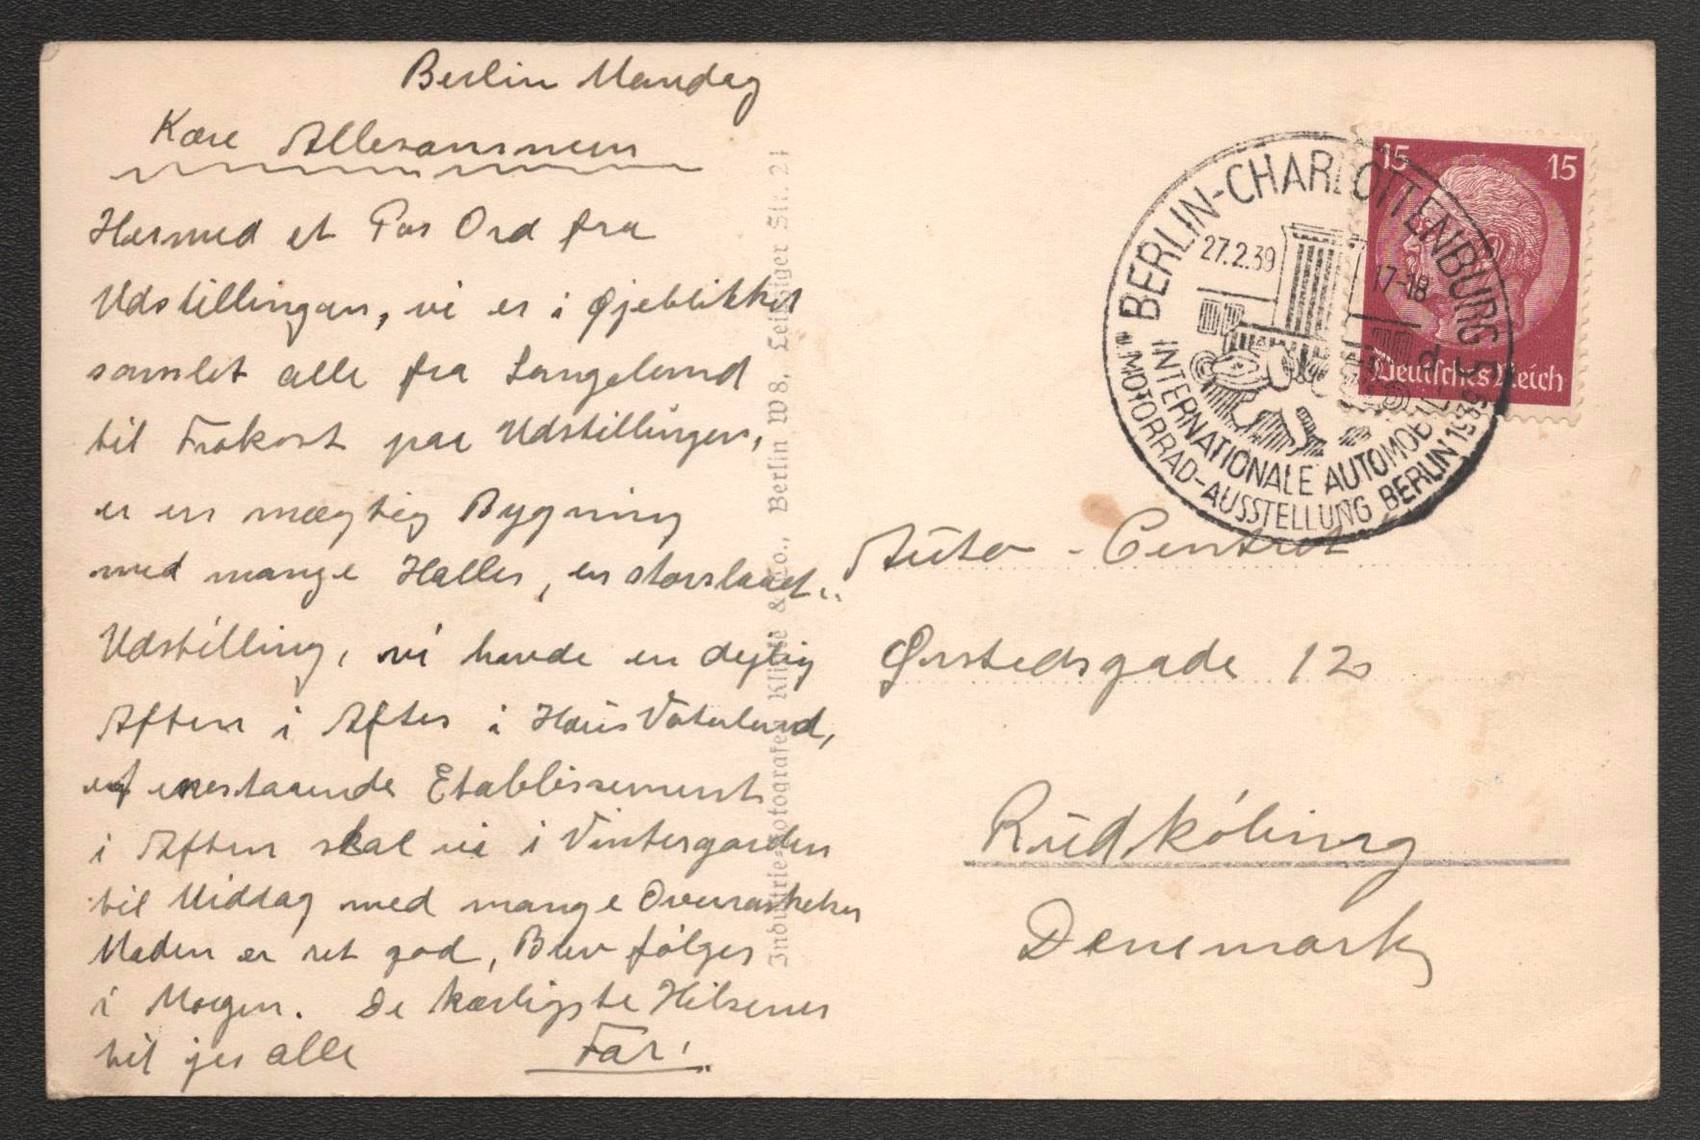 Berlin Mandag
Kære Allesammen
Hermed et Par Ord fra
Udstillingen, vi er i Øjeblikket
samlet alle fra Langeland
til Frokost paa Udstillingen,
er en mægtig Bygning
med mange Haller, en storslaaet
Udstilling, vi havde en dejlig
Aften i Aftes i Haus Vaterland,
et enestaaende Etablissement
i Aften skal vi i Vintergarden
til Middag med mange Overraskelser
Maden er ret god, Brev følger
i Morgen. De kærligste Hilsener
til jer alle Far!
Industrie-Fotografen Klinke & Co., Berlin W8, Leipziger Str. 21
BERLIN-CHARLOTTENBURG 5
27.2.39
17-18
d
INTERNATIONALE AUTOMOBIL-
U. MOTORRAD-AUSSTELLUNG BERLIN 1939
15 15
Deutsches Reich
Auto-Centret
Ørstedsgade 12
Rudköbing
Denemark